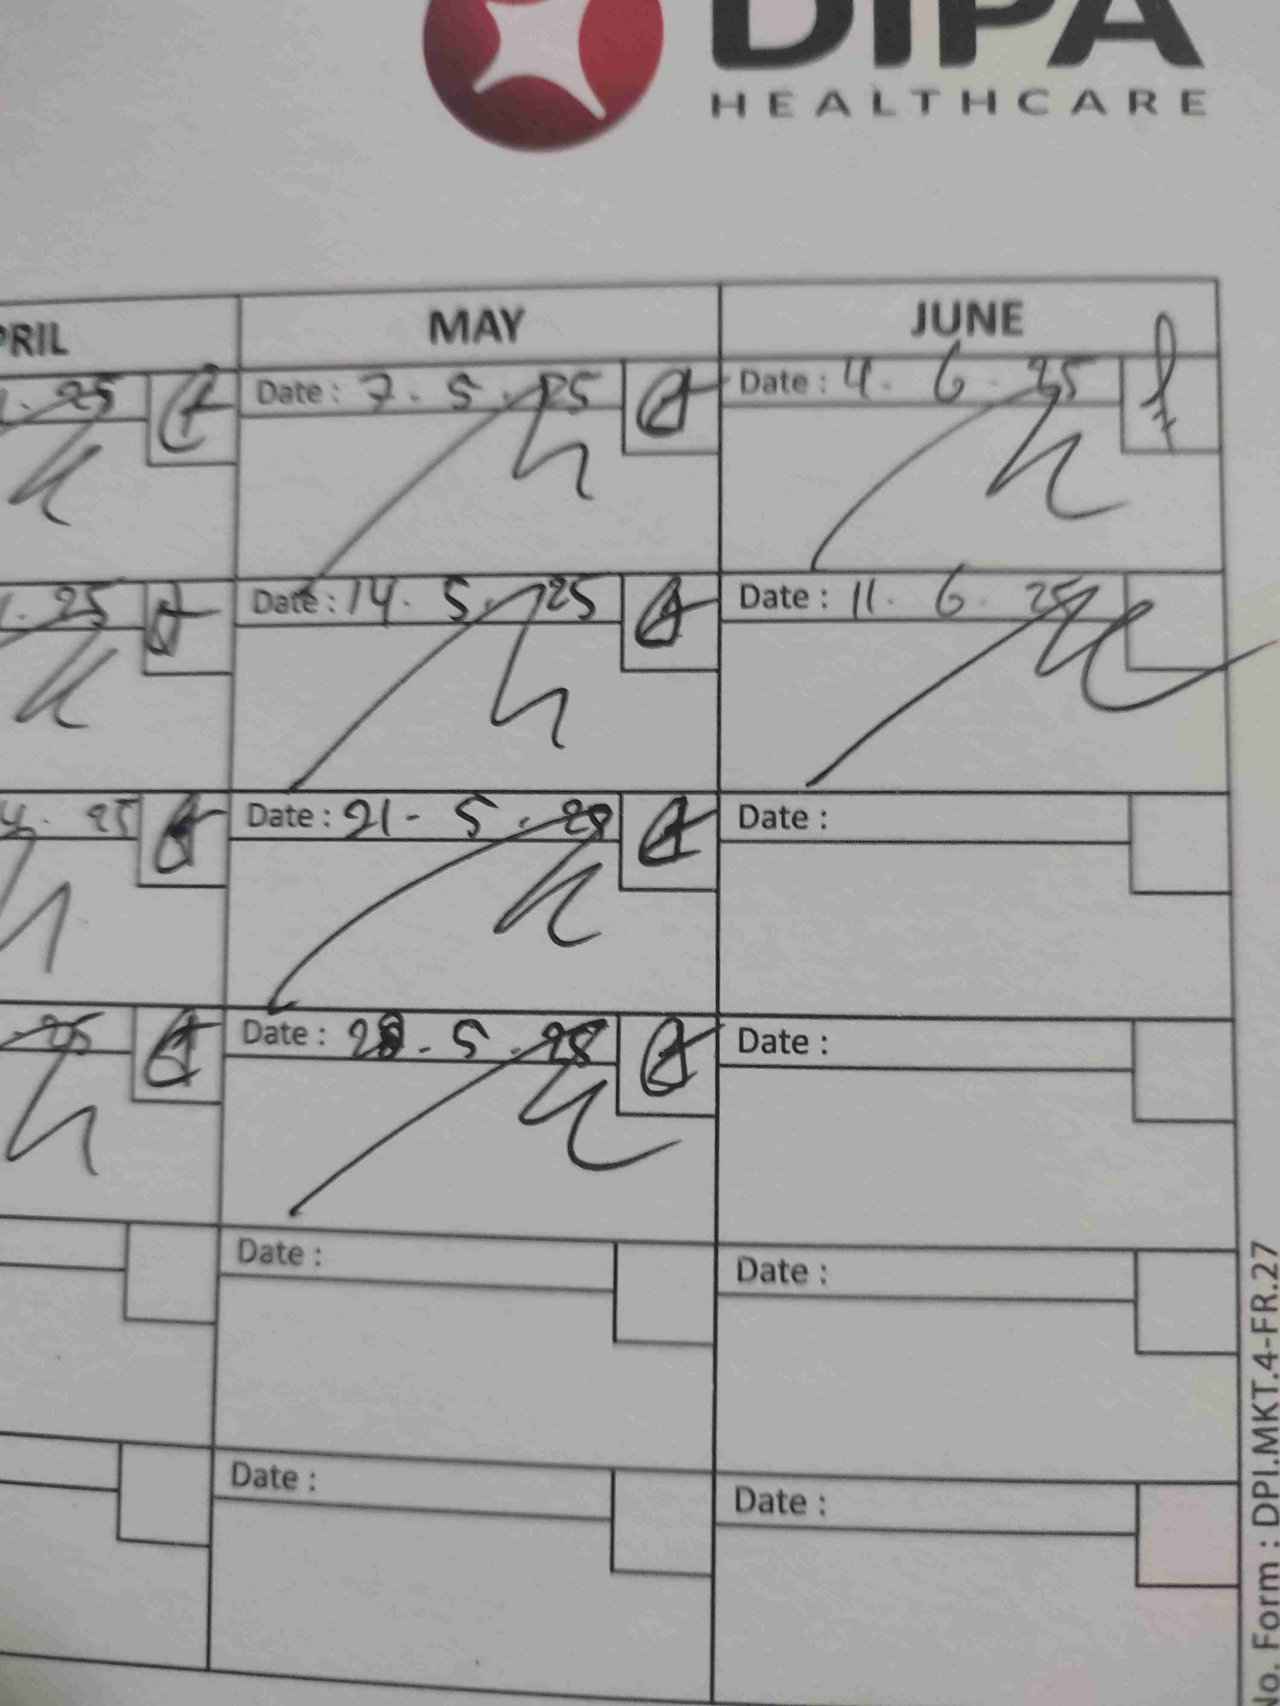 DIPA
HEALTHCARE
PRIL MAY JUNE
. 25 Date : 7. 5. 25 Date : 4. 6. 25
. 25 Date : 14. 5. 25 Date : 11. 6. 25
4. 25 Date : 21- 5. 25 Date :
25 Date : 28. 5. 25 Date :
Date : Date :
Date : Date :
No. Form : DPI.MKT.4-FR.27